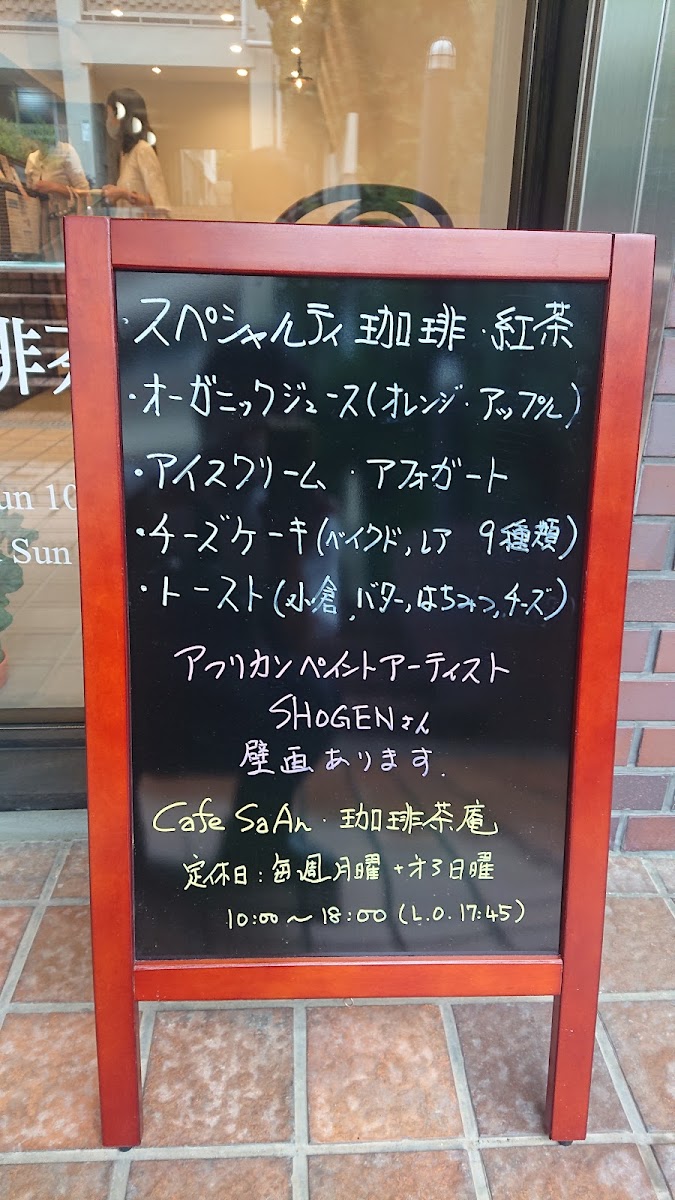 ・スペシャルティ珈琲・紅茶
・オーガニックジュース(オレンジ・アップル)
・アイスクリーム・アフォガート
・チーズケーキ(ベイクド,レア 9種類)
・トースト(小倉,バター,はちみつ,チーズ)
アフリカンペイントアーティスト
SHOGENさん
壁画あります.
Cafe SaAn・珈琲茶庵
定休日:毎週月曜+才3日曜
10:00〜18:00(L.O.17:45)
琲茶
un 10
Sun